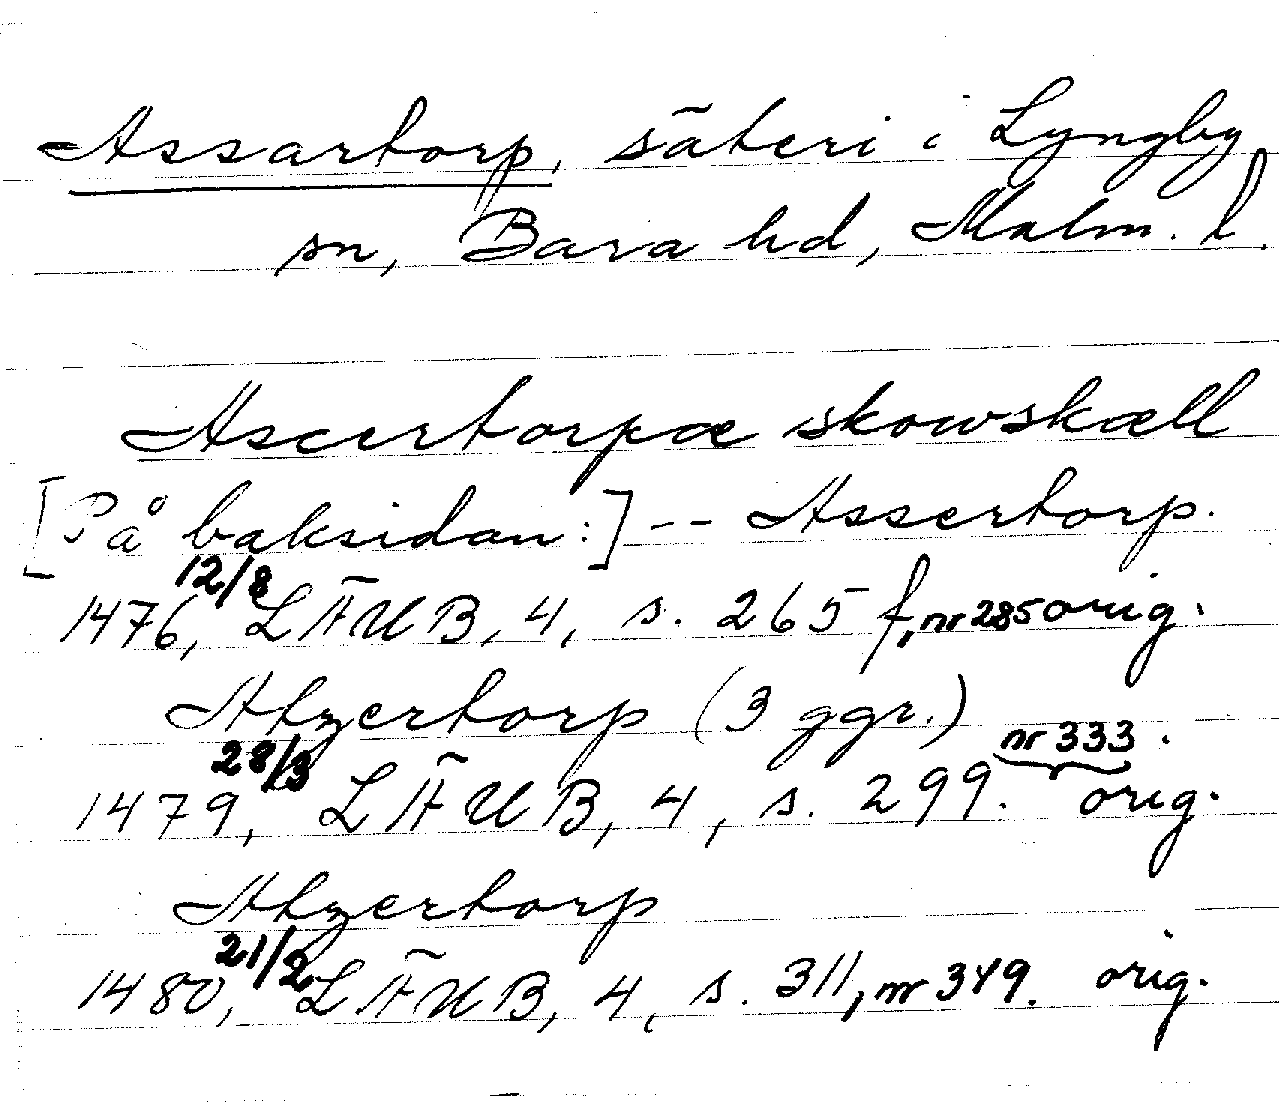 Assartorp, säteri i Lyngby
sn, Bara hd, Malm. l.
Ascertorpæ skowskæll
[På baksidan:] -- Assertorp.
1476, 12/8 LÄUB, 4, s. 265 f, nr 285 orig.
Atzertorp (3 ggr.)
1479, 28/3 LÄUB, 4, s. 299. nr 333. orig.
Atzertorp
1480, 21/2 LÄUB, 4, s. 311, nr 349. orig.